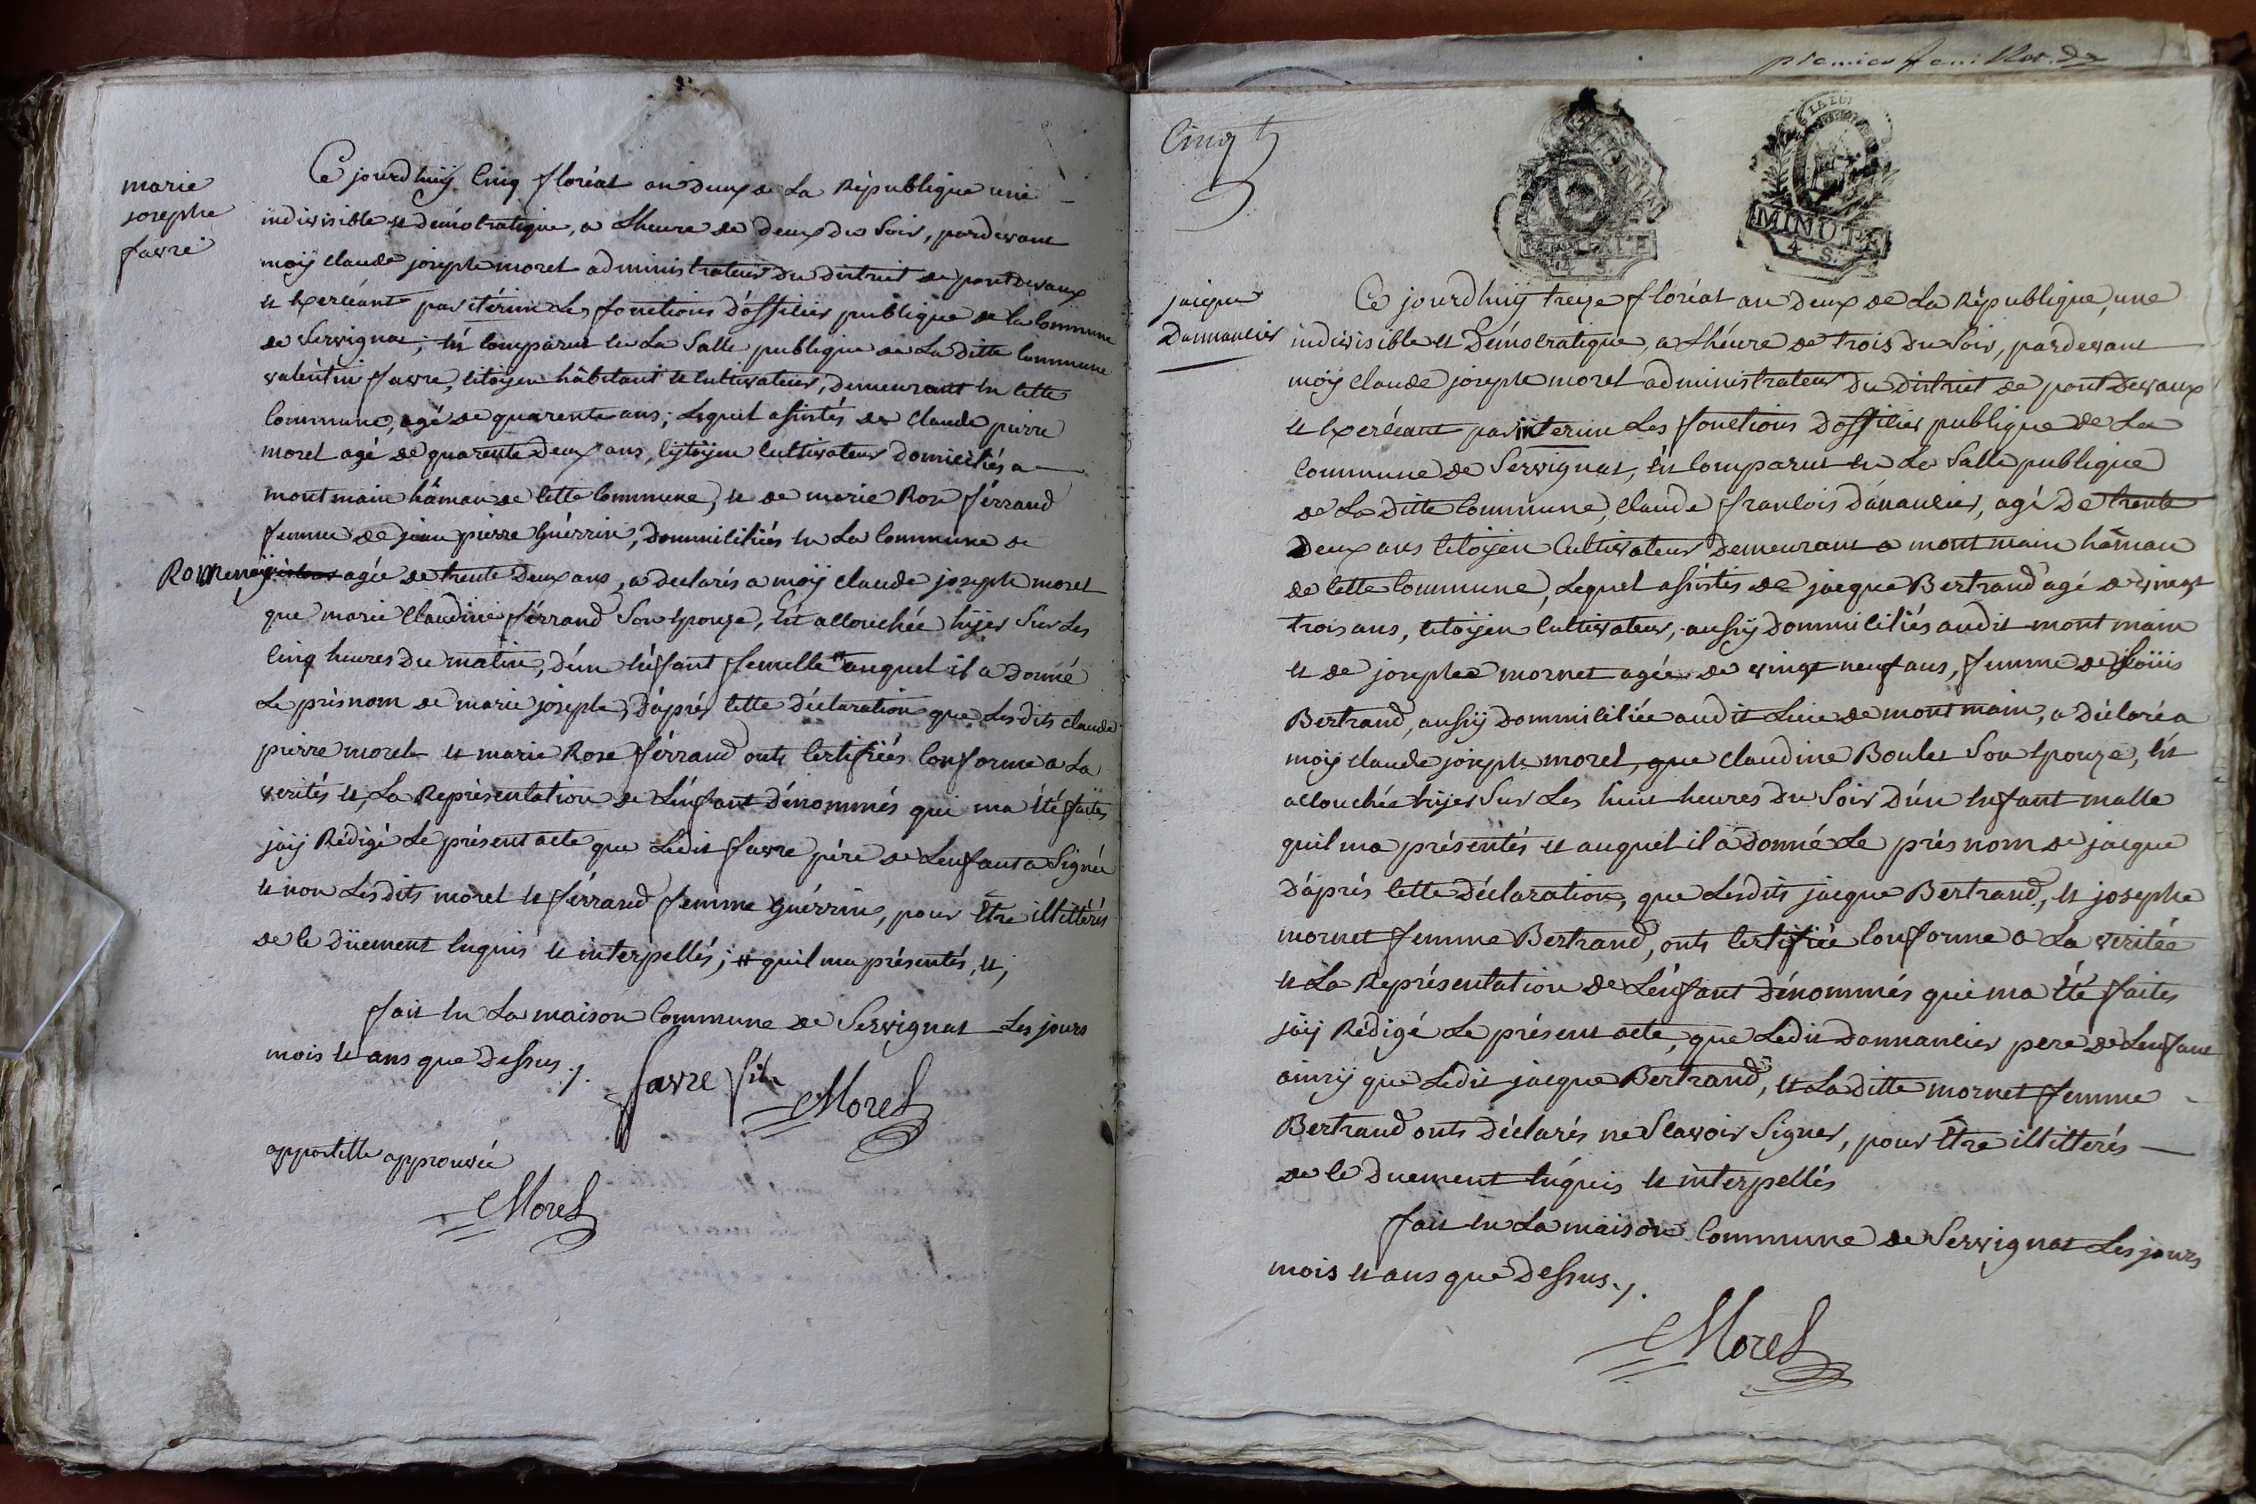 marie
josephe
favre
Ce jourdhuÿ Cinq floréat an deux de La République une
indivisible et Démocratique, a Lheure de deux du Soir, pardevant
moÿ claude joseph morel administrateur du district de pontdevaux
et Exercéant par itérim Les fonctions d'officier publique de la Commune
de Servignat; Est Comparut En La Salle publique de La ditte Commune
valentin favre, Citoyen hâbitant et Cultivateur, demeurant En Cette
Commune, agé de quarente ans; Lequel assistés de Claude pierre
morel agé de quarente deux ans, Cytoÿen Cultivateur Domiciliés a
mont main hâmau de Cette Commune, et de marie Rose férrand
femme de jean pierre Guérrin, Dommiciliés En La Commune de
Romenaÿ agée de trente deux ans, a declarés a moÿ claude joseph morel
que marie Claudine férrand Son Epouze, Est accouchée hÿer Sur Les
Cinq heures Du matin, d'un Enfant femelle auquel il a Donné
Le présnom de marie josephe, D'aprés Cette déclaration que Lesdits claude
pierre morel et marie Rose férrand onts Certifiéés Conforme a La
verités et La Représentation de L'énfant Dénommés qui ma Eté faites
jaÿ Rédigé Le présent acte que Ledit favre pére de Lenfant a Signée
et non Lesdits morel et férrand femme Guérrin, pour Etre illittérés
de Ce Düement Enquis et interpellés; et quil ma présentés, et,
fait En La maison Commune de Servignat Les jours
mois et ans que Dessus ./.
favre fils
Morel
appostille approuvée
Morel
premier feuillet
Cinq
LA LOI
MINUTE
4 S.
jacque
Dannancier
Ce jourdhuÿ treze floréat an deux de La République, une
indivisible et Démocratique, a Lhéure de trois du Soir, pardevant
moÿ Claude joseph morel administrateur du district de pont Devaux
et Exercéant par interim Les fonctions D'officier publique de La
Commune de Servignat, Est Comparut En La Salle publique
de La ditte Commune, Claude francois dánancier, agé De trente
Deux ans Citoÿen Cultivateur Demeurant a mont main hâmau
de Cette Commune, Lequel assistés de jacque Bertrand agé de vingt
trois ans, Citoÿen Cultivateur, aussÿ Dommiciliés audit mont main
et de josephe mornet agée de vingt neuf ans, femme de Loüis
Bertrand, aussÿ Dommiciliée audit Lieu de mont main, a Déclaré a
moÿ claude joseph morel, que claudine Boulet Son Epouze, Est
accouchée hÿer Sur Les huit heures Du Soir D'un Enfant malle
quil ma présentés et auquel il a Donné Le présnom de jacque
D'aprés Cette Déclaration, que Lesdits jacque Bertrand, et josephe
mornet femme Bertrand, onts Certifiée Conforme a La veritée
et La Représentation de L'énfant Dénommés qui ma Eté faites
jaÿ Rédigé Le présent acte, que Ledit dannancier pere de Lenfant
ainsÿ que Ledit jacque Bertrand, et La ditte mornet femme
Bertrand onts Déclarés ne Scavoir Signer, pour Etre illitterés
de Ce duement Enquis et interpellés
fait En La maison Commune de Servignat Les jours
mois et ans que Dessus ./.
Morel